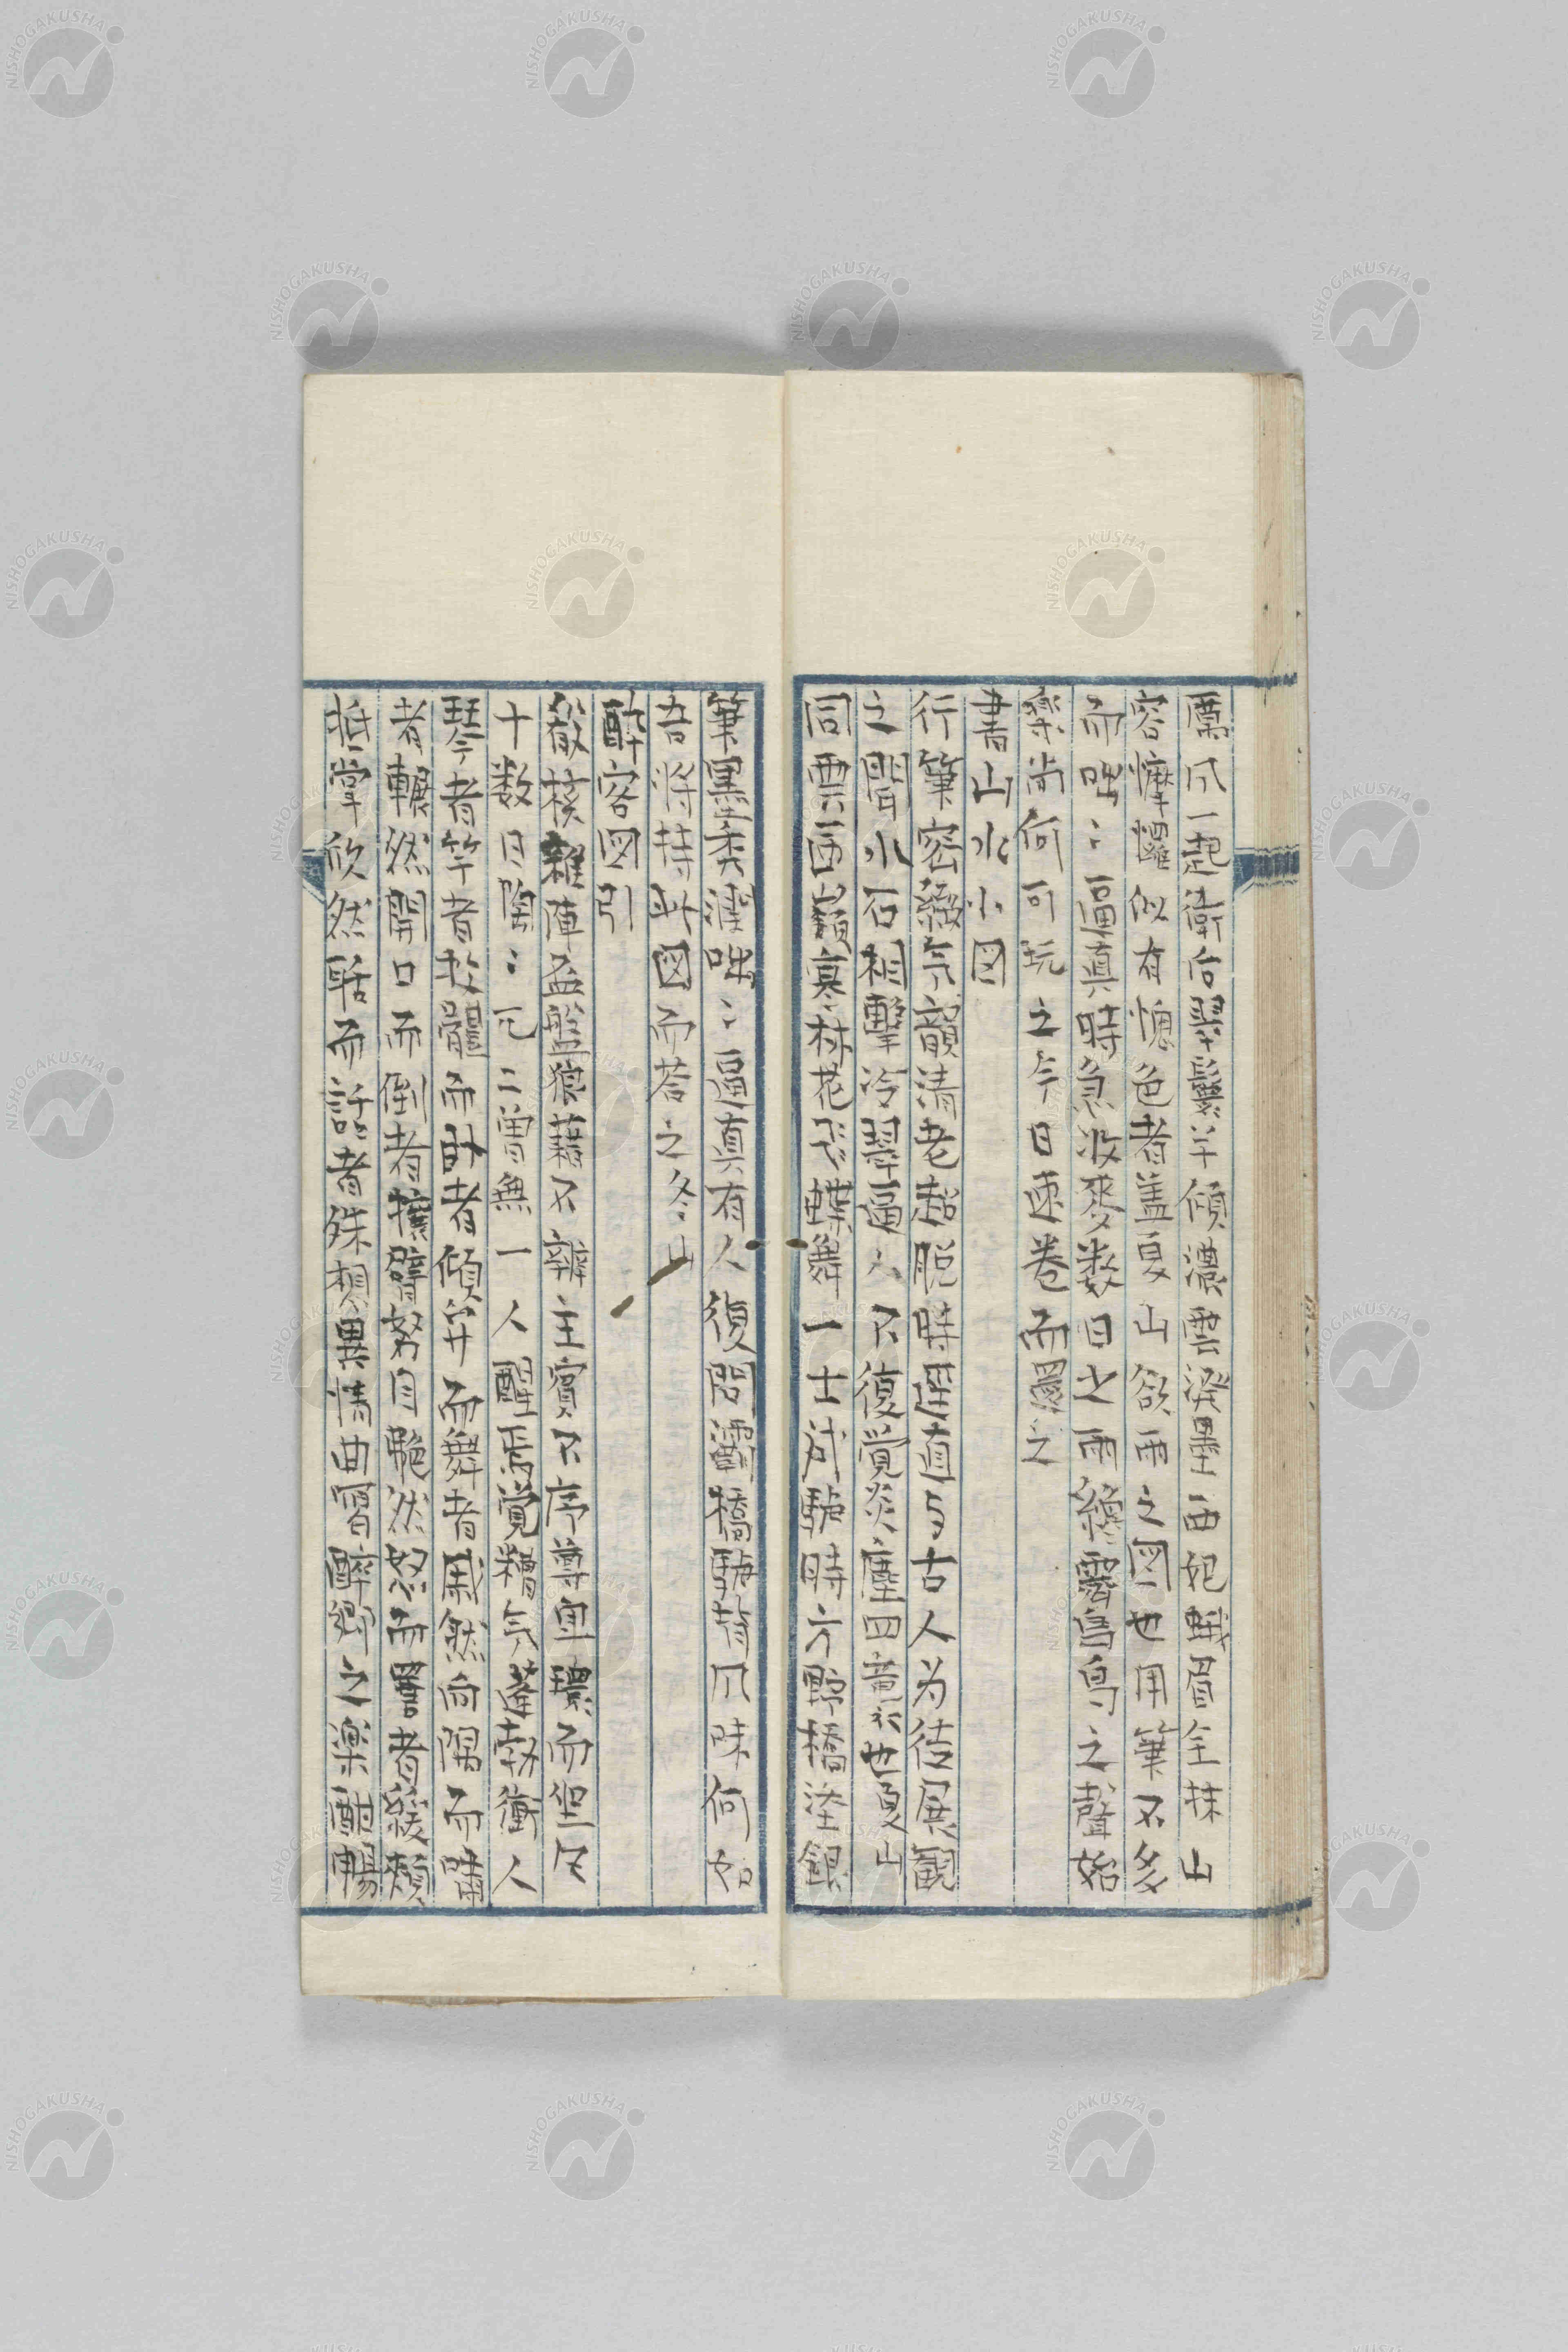 風一起衛后翠鬟半傾濃雲潑墨西妃蛾眉全抹山
容懡㦬似有愧色者盖夏山欲雨之図也用筆不多
而咄〻逼真時急收麥数日之雨纔霽烏鳥之聲始
楽尚何可玩之今日速卷而還之
書山水小図
行筆密緻気韻清老超脱時逕直与古人为徒展観
之間水石相擊冷翠逼人不復覚炎塵四竟也夏山
同雲西嶺寒林花飛蝶舞一士策驢時方野橋塗銀
筆墨秀潤咄〻逼真有人復問灞橋驢背風味何如
吾将持此図而荅之冬山
酔客図引
殽核雑陣盃盤狼藉不辨主賓不序尊卑環而坐凡
十数日陶〻兀〻曽無一人醒焉覚糟気蓬勃衝人
琴者竽者枕罍而卧者傾弁而舞者戚然向隅而嘯
者輾然開口而倒者攘臂努目艴然怒而詈者緩頬
抵掌欣然聒而話者殊想異情曲冩醉郷之楽酣暢